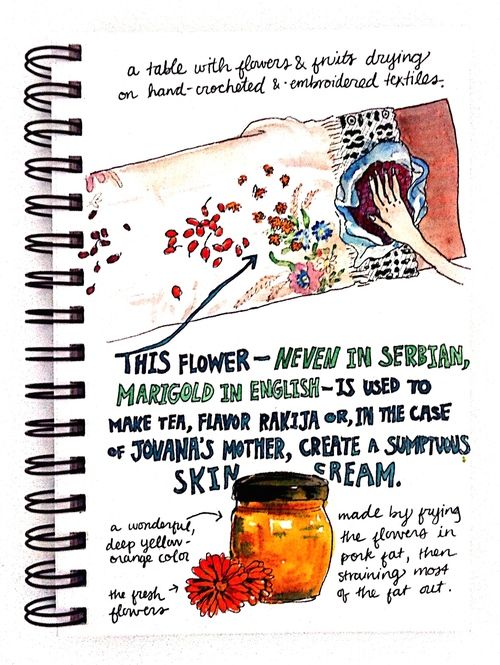 a table with flowers & fruits drying
on hand-crocheted & embroidered textiles.
THIS FLOWER – NEVEN IN SERBIAN,
MARIGOLD IN ENGLISH – IS USED TO
MAKE TEA, FLAVOR RAKIJA OR, IN THE CASE
OF JOVANA'S MOTHER, CREATE A SUMPTUOUS
SKIN CREAM.
a wonderful,
deep yellow-
orange color
the fresh
flowers
made by frying
the flowers in
pork fat, then
straining most
of the fat out.